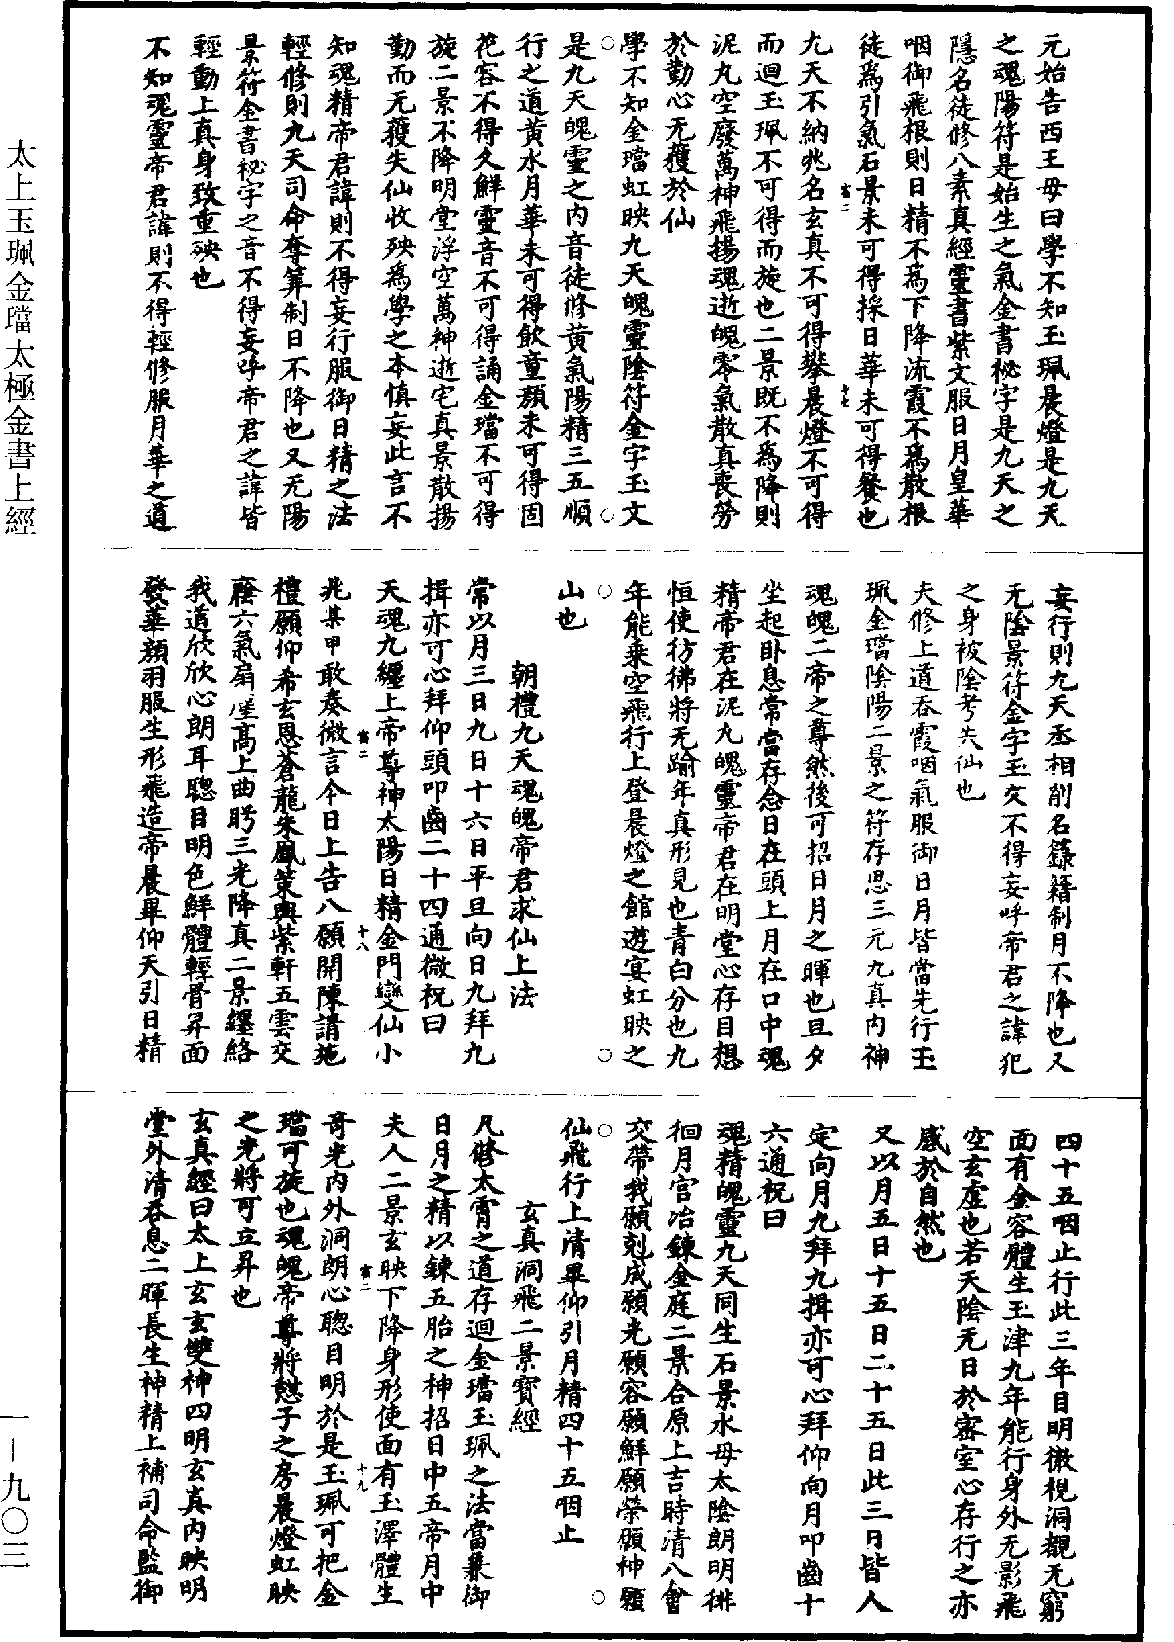 太上玉珮金璫太極金書上經
元始告西王母曰學不知玉珮晨燈是九天
之魂陽符是始生之氣金書祕字是九天之
隱名徒修八素真經靈書紫文服日月皇華
咽御飛根則日精不為下降流霞不為散根
徒為引氣石景未可得採日華未可得餐也
九天不納兆名玄真不可得攀晨燈不可得
而迴玉珮不可得而旋也二景既不為降則
泥丸空廢萬神飛揚魂逝魄零氣散真喪勞
於勤心无獲於仙
學不知金璫虹映九天魄靈陰符金字玉文
是九天魄靈之內音徒修黃氣陽精三五順
行之道黃水月華未可得飲童顏未可得固
花容不得久鮮靈音不可得誦金璫不可得
旋二景不降明堂浮空萬神逝宅真景散揚
勤而无獲失仙收殃為學之本慎妄此言不
知魂精帝君諱則不得妄行服御日精之法
輕修則九天司命奪筭制日不降也又无陽
景符金書祕字之音不得妄呼帝君之諱皆
輕動上真身致重殃也
不知魂靈帝君諱則不得輕修服月華之道
妄行則九天丞相削名籙籍制月不降也又
无陰景符金字玉文不得妄呼帝君之諱犯
之身被陰考失仙也
夫修上道吞霞咽氣服御日月皆當先行玉
珮金璫陰陽二景之符存思三元九真內神
魂魄二帝之尊然後可招日月之暉也旦夕
坐起臥息常當存念日在頭上月在口中魂
精帝君在泥丸魄靈帝君在明堂心存目想
恒使彷彿將无踰年真形見也青白分也九
年能乘空飛行上登晨燈之館遊宴虹映之
山也
朝禮九天魂魄帝君求仙上法
常以月三日九日十六日平旦向日九拜九
揖亦可心拜仰頭叩齒二十四通微祝曰
天魂九纏上帝尊神太陽日精金門變仙小
兆某甲敢奏微言今日上告八願開陳請施
禮願仰希玄恩蒼龍朱鳳策輿紫軒五雲交
蔭六氣扇塵高上曲眄三光降真二景纏絡
我道欣欣心朗耳聰目明色鮮體輕骨昇面
發華顏羽服生形飛造帝晨畢仰天引日精
四十五咽止行此三年目明徹視洞覩无窮
面有金容體生玉津九年能行身外无影飛
空玄虛也若天陰无日於密室心存行之亦
感於自然也
又以月五日十五日二十五日此三日皆人
定向月九拜九揖亦可心拜仰向月叩齒十
六通祝曰
魂精魄靈九天同生石景水母太陰朗明徘
徊月宮冶鍊金庭二景合原上吉時清八會
交帶我願剋成願光願容願鮮願榮願神願
仙飛行上清畢仰引月精四十五咽止
玄真洞飛二景寶經
凡修太霄之道存迴金璫玉珮之法當兼御
日月之精以鍊五胎之神招日中五帝月中
夫人二景玄映下降身形使面有玉澤體生
奇光內外洞朗心聰目明於是玉珮可把金
璫可旋也魂魄帝尊將憇子之房晨燈虹映
之光將可立昇也
玄真經曰太上玄玄雙神四明玄真內映明
堂外清吞息二暉長生神精上補司命監御
一－九〇三